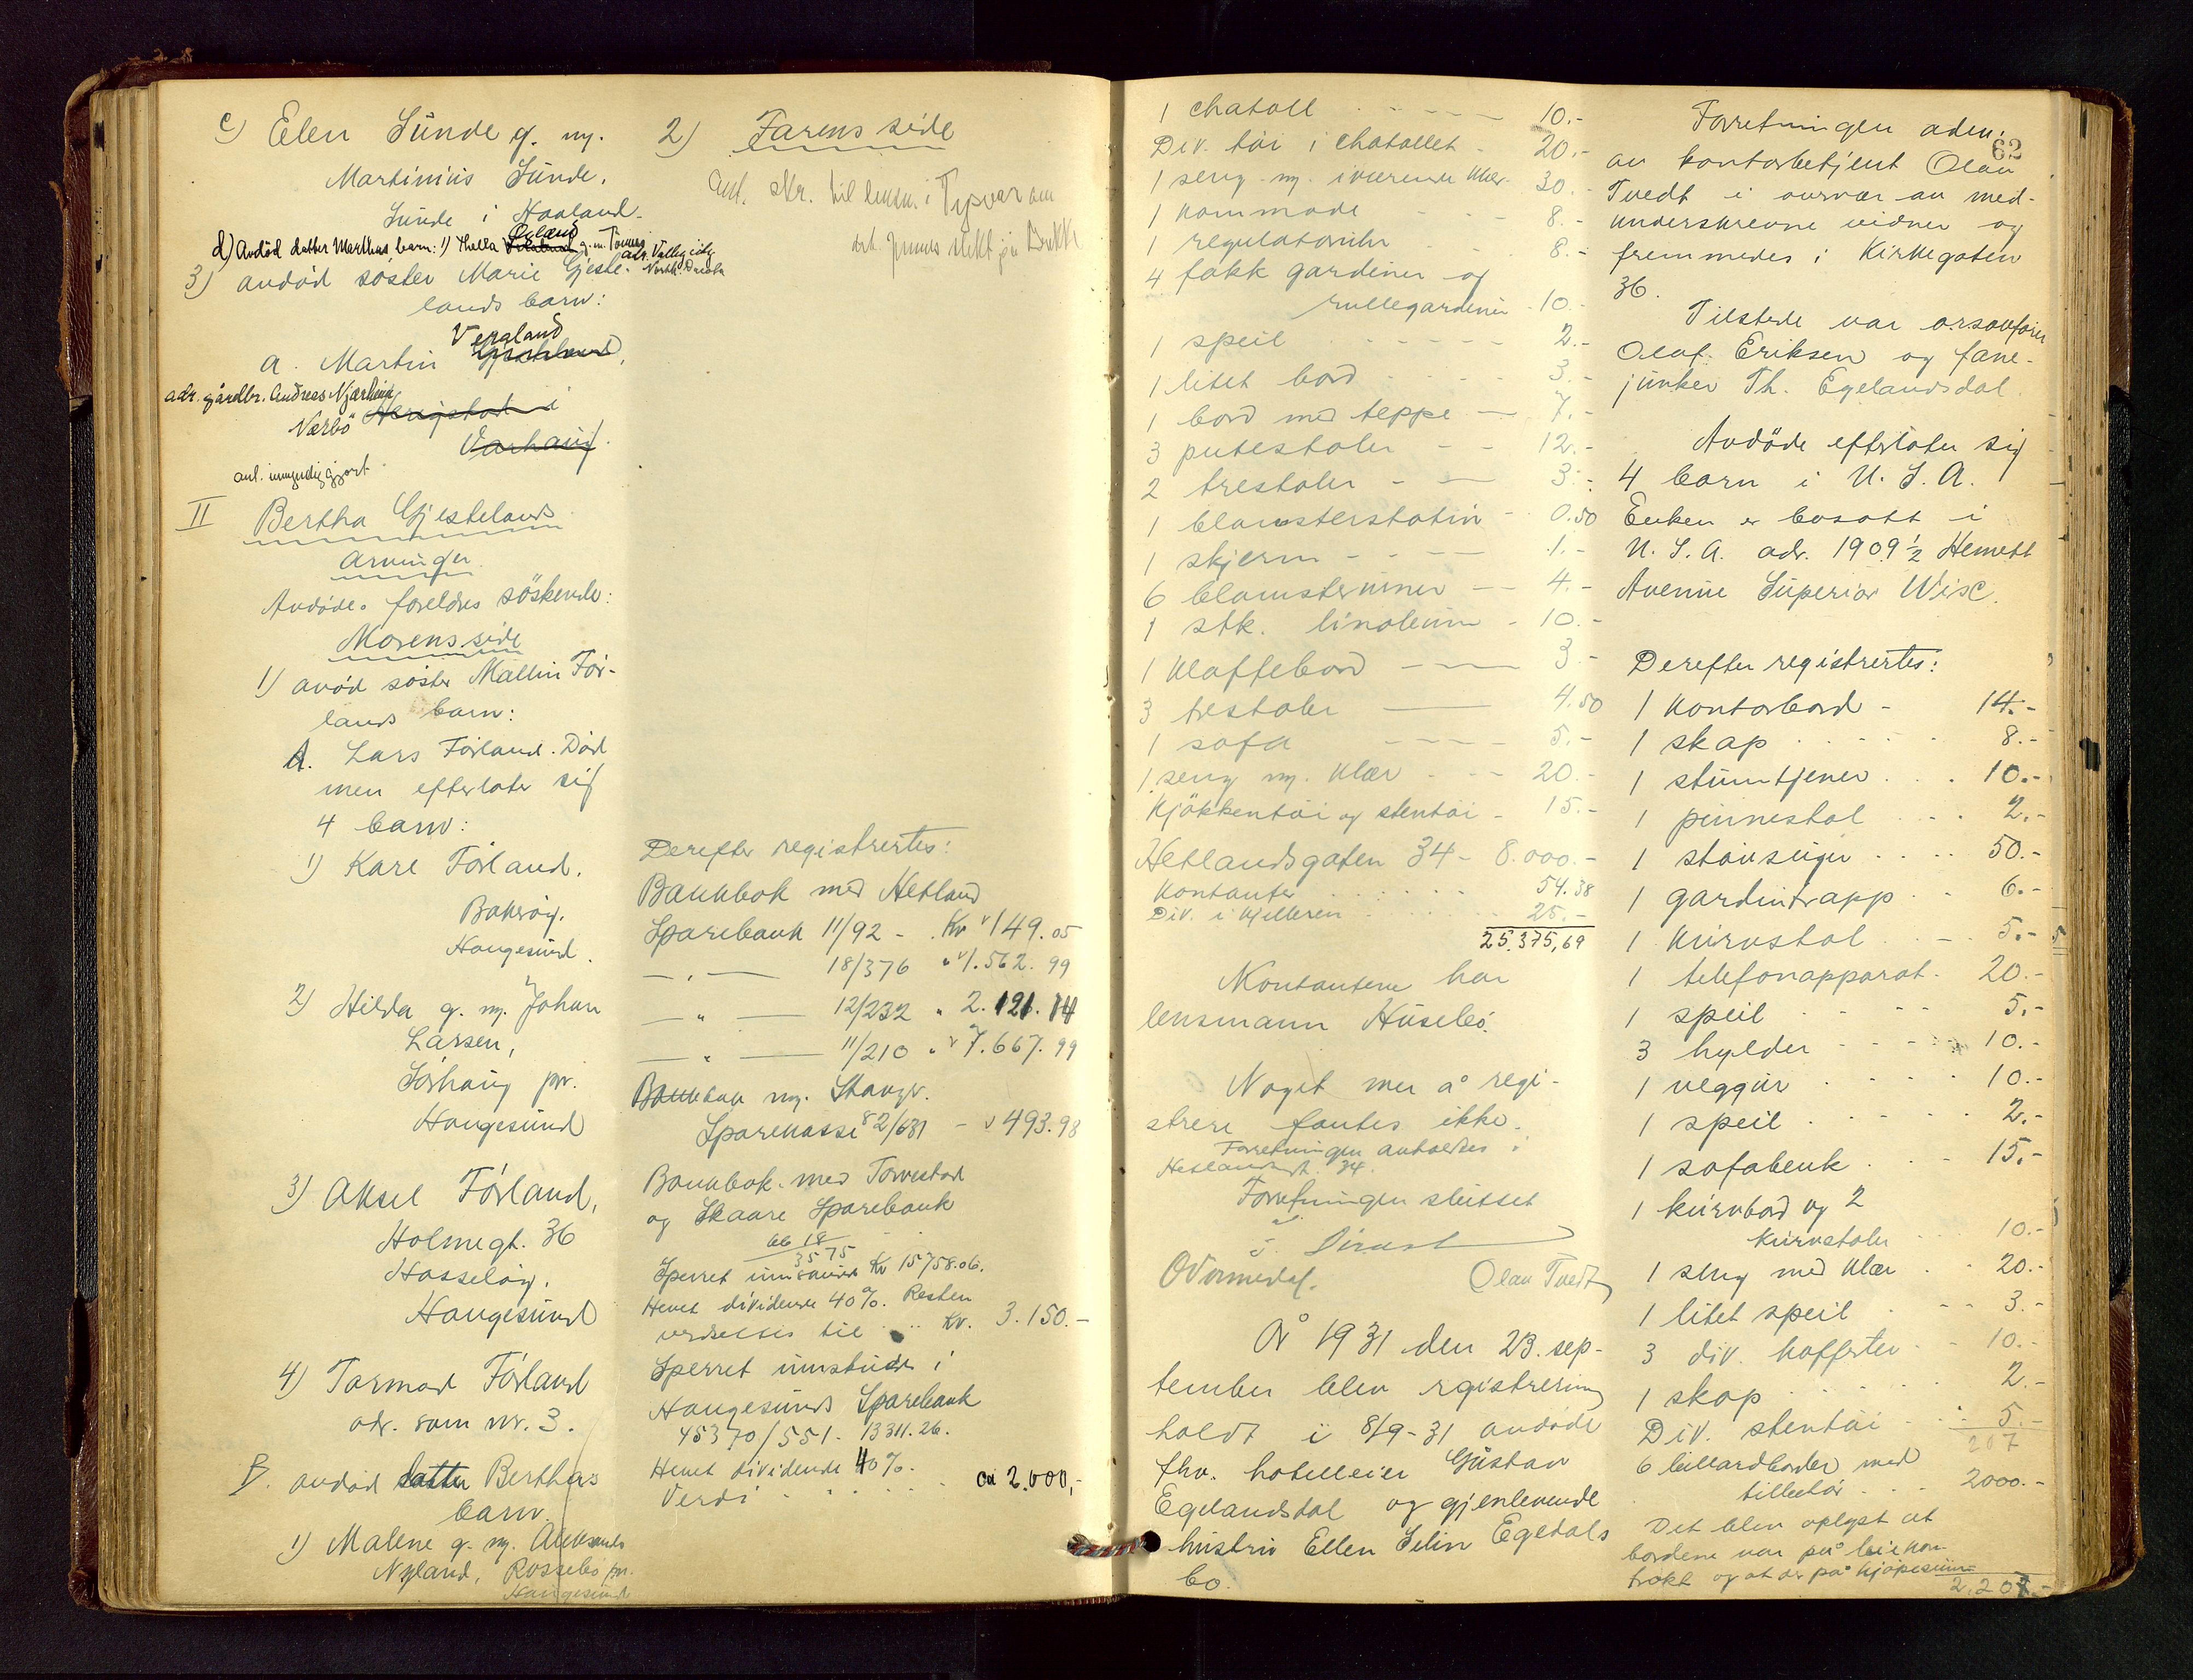 c) Elen Sunde g. m.
Martinius Sunde,
Sunde i Haaland.
d) Avdöd datter Marthas barn: 1) Thella Oeland g. m. Tommy
adr. Valley city
North Dacota
3) avdöd söster Marie Gjeste-
lands barn:
a. Martin Vegaland
adr. gårdbr. Andreas Njærheim,
Nærbö
Varhaug.
ant. umyndiggjort
II Bertha Gjestelands
arvinger
Avdödes foreldres söskende:
Morens side
1) avöd söster Mallin För-
lands barn:
A. Lars Förland. Död
men efterlater sig
4 barn:
1) Kare Förland.
Bakröy.
Haugesund.
2) Hilda g. m. Johan
Larsen,
Sörhaug pr.
Haugesund
3) Aksel Förland,
Holmegt. 36
Hasselöy.
Haugesund
4) Tormod Förland
adr. som nr. 3.
B. avdöd datter Berthas
barn.
1) Malene g. m. Aleksander
Nyland, Rossebö pr.
Haugesund
2) Farens side
Ant. skr. til lensm. i Tysvær om
Derefter registrertes:
Bankbok med Hetland
Sparebank 11/92 - Kr 149.05
— " — 18/376 " 1.562.99
— " — 12/232 " 2.121.14
— " — 11/210 " 7.667.99
Bankbok m. Stavgr.
Sparekasse 82/631 - 493.98
Bankbok med Torvestad
og Skaare Sparebank
66 18
3575
Sperret innskudd Kr 15758.06.
Hevet dividende 40%. Resten
verdsettes til Kr. 3.150.-
Sperret innskudd i
Haugesunds Sparebank
45370/551 - 13311.26.
Hevet dividende 40%.
Verdi ca 2.000,-
1 chatoll 10.-
Div. töi i chatollet - 20.-
1 seng m. iværende klær 30.-
1 kommode 8.-
1 regulatoruhr 8.-
4 fakk gardiner og
rullegardiner 10.-
1 speil 2.-
1 litet bord 3.-
1 bord med teppe 7.-
3 putestoler 12.-
2 trestoler 3.-
1 blomsterstativ 0.50
1 skjerm 1.-
6 blomsterurner 4.-
1 stk. linoleum - 10.-
1 klaffebord 3.-
3 trestoler 4.50
1 sofa 5.-
1 seng m. klær 20.-
Kjökkentöi og stentöi - 15.-
Hetlandsgaten 34 - 8.000.-
Kontanter 54.38
Div. i kjelleren 25.-
25.375,69
Kontantene har
lensmann Husebö.
Noget mer å regi-
strere fantes ikke.
Forretningen avholdtes i
Hetlandsgt. 34.
Forretningen sluttet
Olav Tvedt
År 1931 den 23. sep-
tember blev rgistrering
holdt i 8/9-31 avdöde
fhv. hotelleier Gustav
Egelandsdal og gjenlevende
hustru Ellen Selin Egedals
bo.
62
Forretningen adm.
av kontorbetjent Olav
Tvedt i overvær av med-
underskrevne vidner og
fremmedes i Kirkegaten
36.
Tilstede var o.r.sakförer
Olaf Eriksen og fane-
junker Th. Egelandsdal.
Avdöde efterlater sig
4 barn i U. S. A.
Enken er bosatt i
U. S. A. adr. 1909 ½ Hewett
Avenue Superior Wisc.
Derefter registrertes:
1 kontorbord - 14.-
1 skap 8.-
1 stumtjener 10.-
1 pinnestol 2.-
1 stövsuger 50.-
1 gardintrapp 6.-
1 kurvstol 5.-
1 telefonapparat - 20.-
1 speil 5.-
3 hylder 10.-
1 veggur 10.-
1 speil 2.-
1 sofabenk 15.-
1 kurvbord og 2
kurvstoler 10.-
1 seng med klær 20.-
1 litet speil 3.-
3 div. kofferter 10.-
1 skap 2.-
Div. stentöi 5.-
207
6 billardborder med
tilbehör 2000.-
Det blev oplyst at
bordene var på leiekon-
trakt og at de på kjöpesum
2.207.-